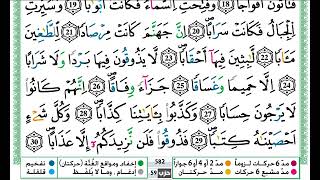 فَتَأْتُونَ أَفْوَاجًا ١٨ وَفُتِحَتِ ٱلسَّمَآءُ فَكَانَتْ أَبْوَٰبًا ١٩ وَسُيِّرَتِ
ٱلْجِبَالُ فَكَانَتْ سَرَابًا ٢٠ إِنَّ جَهَنَّمَ كَانَتْ مِرْصَادًا ٢١ لِّلطَّٰغِينَ
مَـَٔابًا ٢٢ لَّٰبِثِينَ فِيهَآ أَحْقَابًا ٢٣ لَّا يَذُوقُونَ فِيهَا بَرْدًا وَلَا شَرَابًا
٢٤ إِلَّا حَمِيمًا وَغَسَّاقًا ٢٥ جَزَآءً وِفَاقًا ٢٦ إِنَّهُمْ كَانُوا۟
لَا يَرْجُونَ حِسَابًا ٢٧ وَكَذَّبُوا۟ بِـَٔايَٰتِنَا كِذَّابًا ٢٨ وَكُلَّ شَىْءٍ
أَحْصَيْنَٰهُ كِتَٰبًا ٢٩ فَذُوقُوا۟ فَلَن نَّزِيدَكُمْ إِلَّا عَذَابًا ٣٠
مدّ 6 حركات لزوماً مدّ 2 أو 4 أو 6 جوازاً 582 إخفاء، ومواقع الغُنَّة (حركتان) تفخيم
مدّ مشبع 6 حركات مدّ حركتان حزب 59 إدغام، وما لا يُلفَظ قلقلة